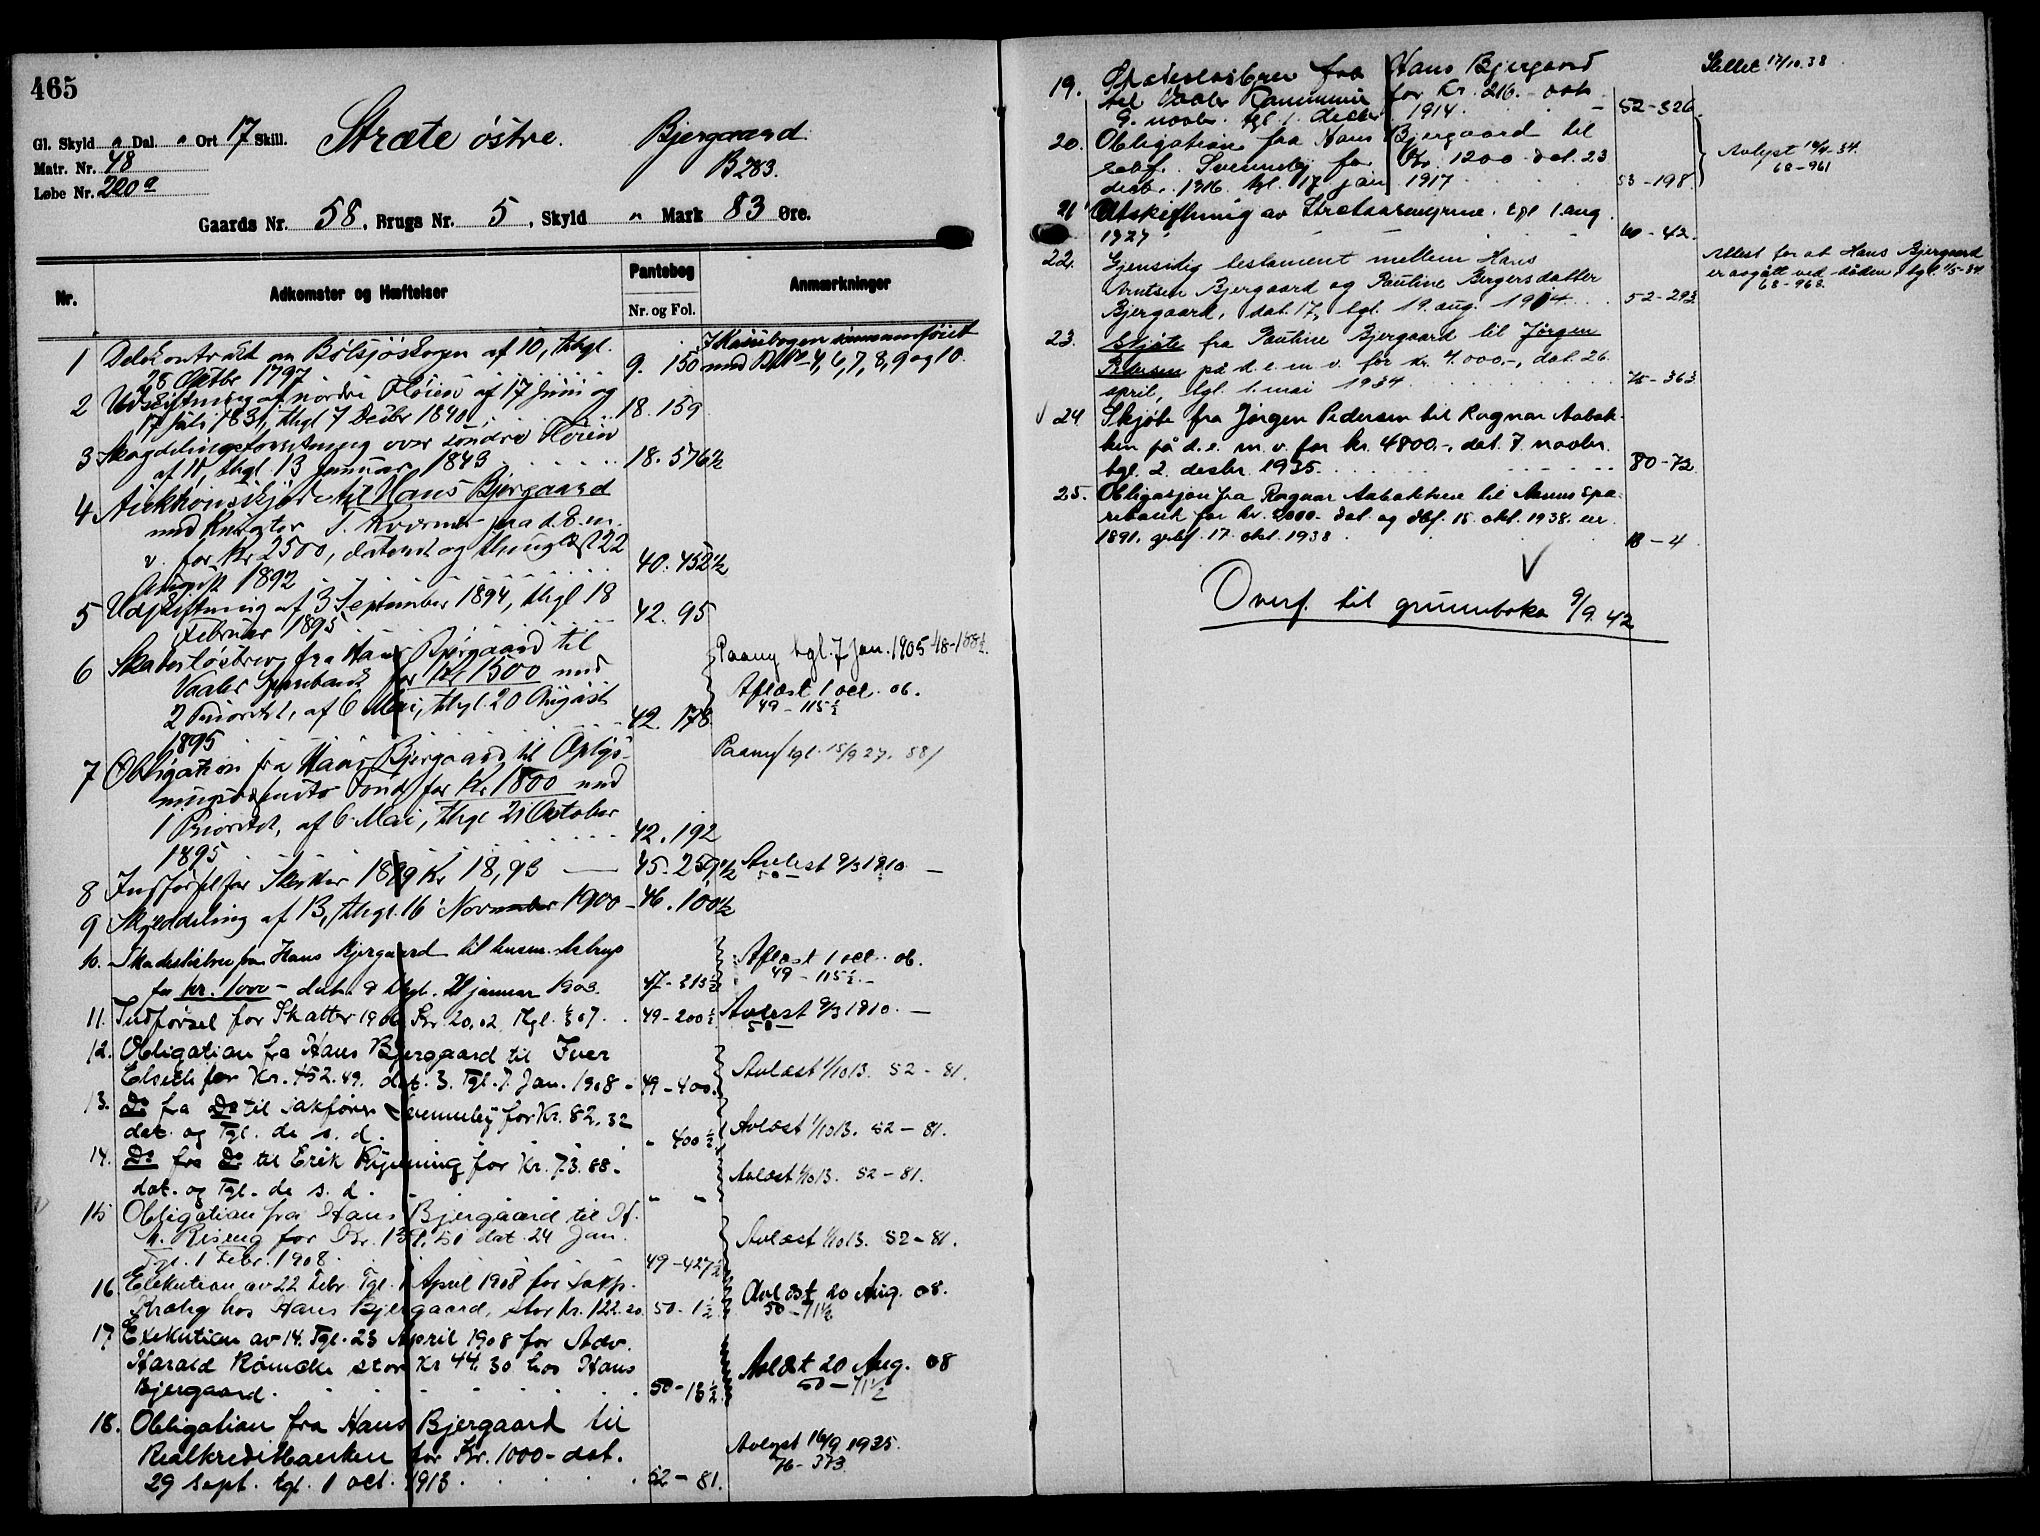 465
Gl. Skyld " Dal. " Ort 17 Skill.
Matr. Nr. 48
Løbe Nr. 220a
Stræte østre.
Bjergaard
B 283.
Gaards Nr. 58, Brugs Nr. 5, Skyld " Mark 83 Øre.
Nr.
Adkomster og Hæftelser
Pantebog
Nr. og Fol.
Anmærkninger
1 Delekontrakt om Bølsjøskogen af 10, thgl.
25 Oktbr 1797 9. 150
I Kassebogen sammenføiet
med B. No 4, 6, 7, 8, 9 og 10.
2 Udskiftning af nordre Fløien af 17 Juni og
17 Juli 1831, thgl 7 Decbr 1840. 18. 159
3 Skogdelingsforretning over søndre Fløien
af 11, thgl. 13 Januar 1843 18. 576½
4 Auktionsskjøde til Hans Bjergaard
med Kvægtor S. Kværnes paa d. E. m.
v. for Kr 2500, dateret og thinglæst 22
August 1892 40. 452½
5 Udskiftning af 3 September 1894, thgl 18
Februar 1895 42. 95
6 Skadesløsbrev fra Hans Bjergaard til
Vaaler Sparebank for Kr 1500 med
2 Prioritet, af 6 Mai, thgl. 20 August
1895 42. 178
Paany tgl. 7 Jan. 1905 48-188½.
Aflæst 1 oct. 06.
49 - 115½
7 Obligation fra Hans Bjergaard til Oplys-
ningsvæsenets Fond for Kr 1800 med
1 Prioritet, af 6 Mai, thgl 21 October
1895 42. 192
Paany tgl. 15/9 27. 58/
8 Indførsel for Skatter 1899 Kr 18,93 — 45. 259½
Avlæst 9/3 1910 —
50 —
9 Skylddeling af 13, thgl. 16 November 1900 - 46. 100½
10. Skadesløsbrev fra Hans Bjergaard til Astrup
for kr. 1000 - dat. 9 thgl. 21 januar 1903. 47 - 313½
Aflæst 1 oct. 06.
49 - 115½ -
11. Indførsel for Skatter 1906 Kr. 20.02. Thgl. 07. 49 - 200½
Avlæst 9/3 1910. —
50 —
12. Obligation fra Hans Bjergaard til Iver
Elseth for Kr. 452.49. dat. 3. Tgl. 7. Jan. 1908 - 49 - 400.
Avlæst 1/10 13. 52 - 81.
13. Do fra Do til sakfører Svenneby for Kr. 82.32
dat. og Tgl. de s. d. " 400½
Avlæst 1/10 13. 52 - 81.
14. Do fra Do til Erik Rynning for Kr. 73.88.
dat. og Tgl. de s. d. " "
Avlæst 1/10 13. 52 - 81.
15 Obligation fra Hans Bjergaard til H.
M. Riseng for Kr. 139,51 dat 24 Jan.
Tgl. 1 Febr. 1908. 49 - 427½
Avlæst 1/10 13. 52 - 81.
16. Exekution av 22 Febr. Tgl. 1 April 1908 for sakf.
Kræby hos Hans Bjergaard, stor Kr. 122.20. 50 - 1½
Avlæst 20 Aug. 08.
50 - 71½
17. Exekution av 14. Tgl. 23 April 1908 for Adv.
Harald Rømcke stor Kr 44.30 hos Hans
Bjergaard. 50 - 13½
Avlæst 20 Aug. 08
50 - 71½
18. Obligation fra Hans Bjergaard til
Realkreditbanken for Kr. 1000 - dat.
29 sept. tgl. 1 oct. 1913. 52 - 81.
Avlyst 16/9 1935.
76 - 373
19. Skadesløsbrev fra Hans Bjergaard
til Vaaler Kommune for Kr. 216.- dat.
9. novbr. tgl. 1. decbr. 1914. 52 - 326.
Slettet 17/10 38
20. Obligation fra Hans Bjergaard til
sakf. Svenneby for Kr. 1200 dat. 23
decbr. 1916. tgl. 17 jan 1917 53 - 198.
Avlyst 12/4 - 34.
68 - 961
21 Utskiftning av Strætesætrene. tgl 1 aug.
1927 60 - 42.
22. Gjensidig testament mellem Hans
Arntsen Bjergaard og Pauline Bergersdatter
Bjergaard, dat. 17, tgl. 19. aug. 1914 52 - 293
Attest for at Hans Bjergaard
er avgått ved døden tgl. 1/5 - 34
68 - 963
23. Skjøte fra Pauline Bjergaard til Jørgen
Pedersen på d. e. m. v. for kr. 4.000,-, dat. 26.
april, tgl. 1. mai 1934 75 - 363
24 Skjøte fra Jørgen Pedersen til Ragnar Aabak-
ken på d. e. m. v. for kr. 4800.-, dat. 7 novbr.
tgl. 2. desbr. 1935. 80 - 72
25. Obligasjon fra Ragnar Aabakken til Aasnes Spa-
rebank for kr. 2000 - dat. og dbf. 15. okt. 1938. nr.
1891. gebf. 17. okt. 1938 B - 4
Overf. til grunnboka 9/9. 42